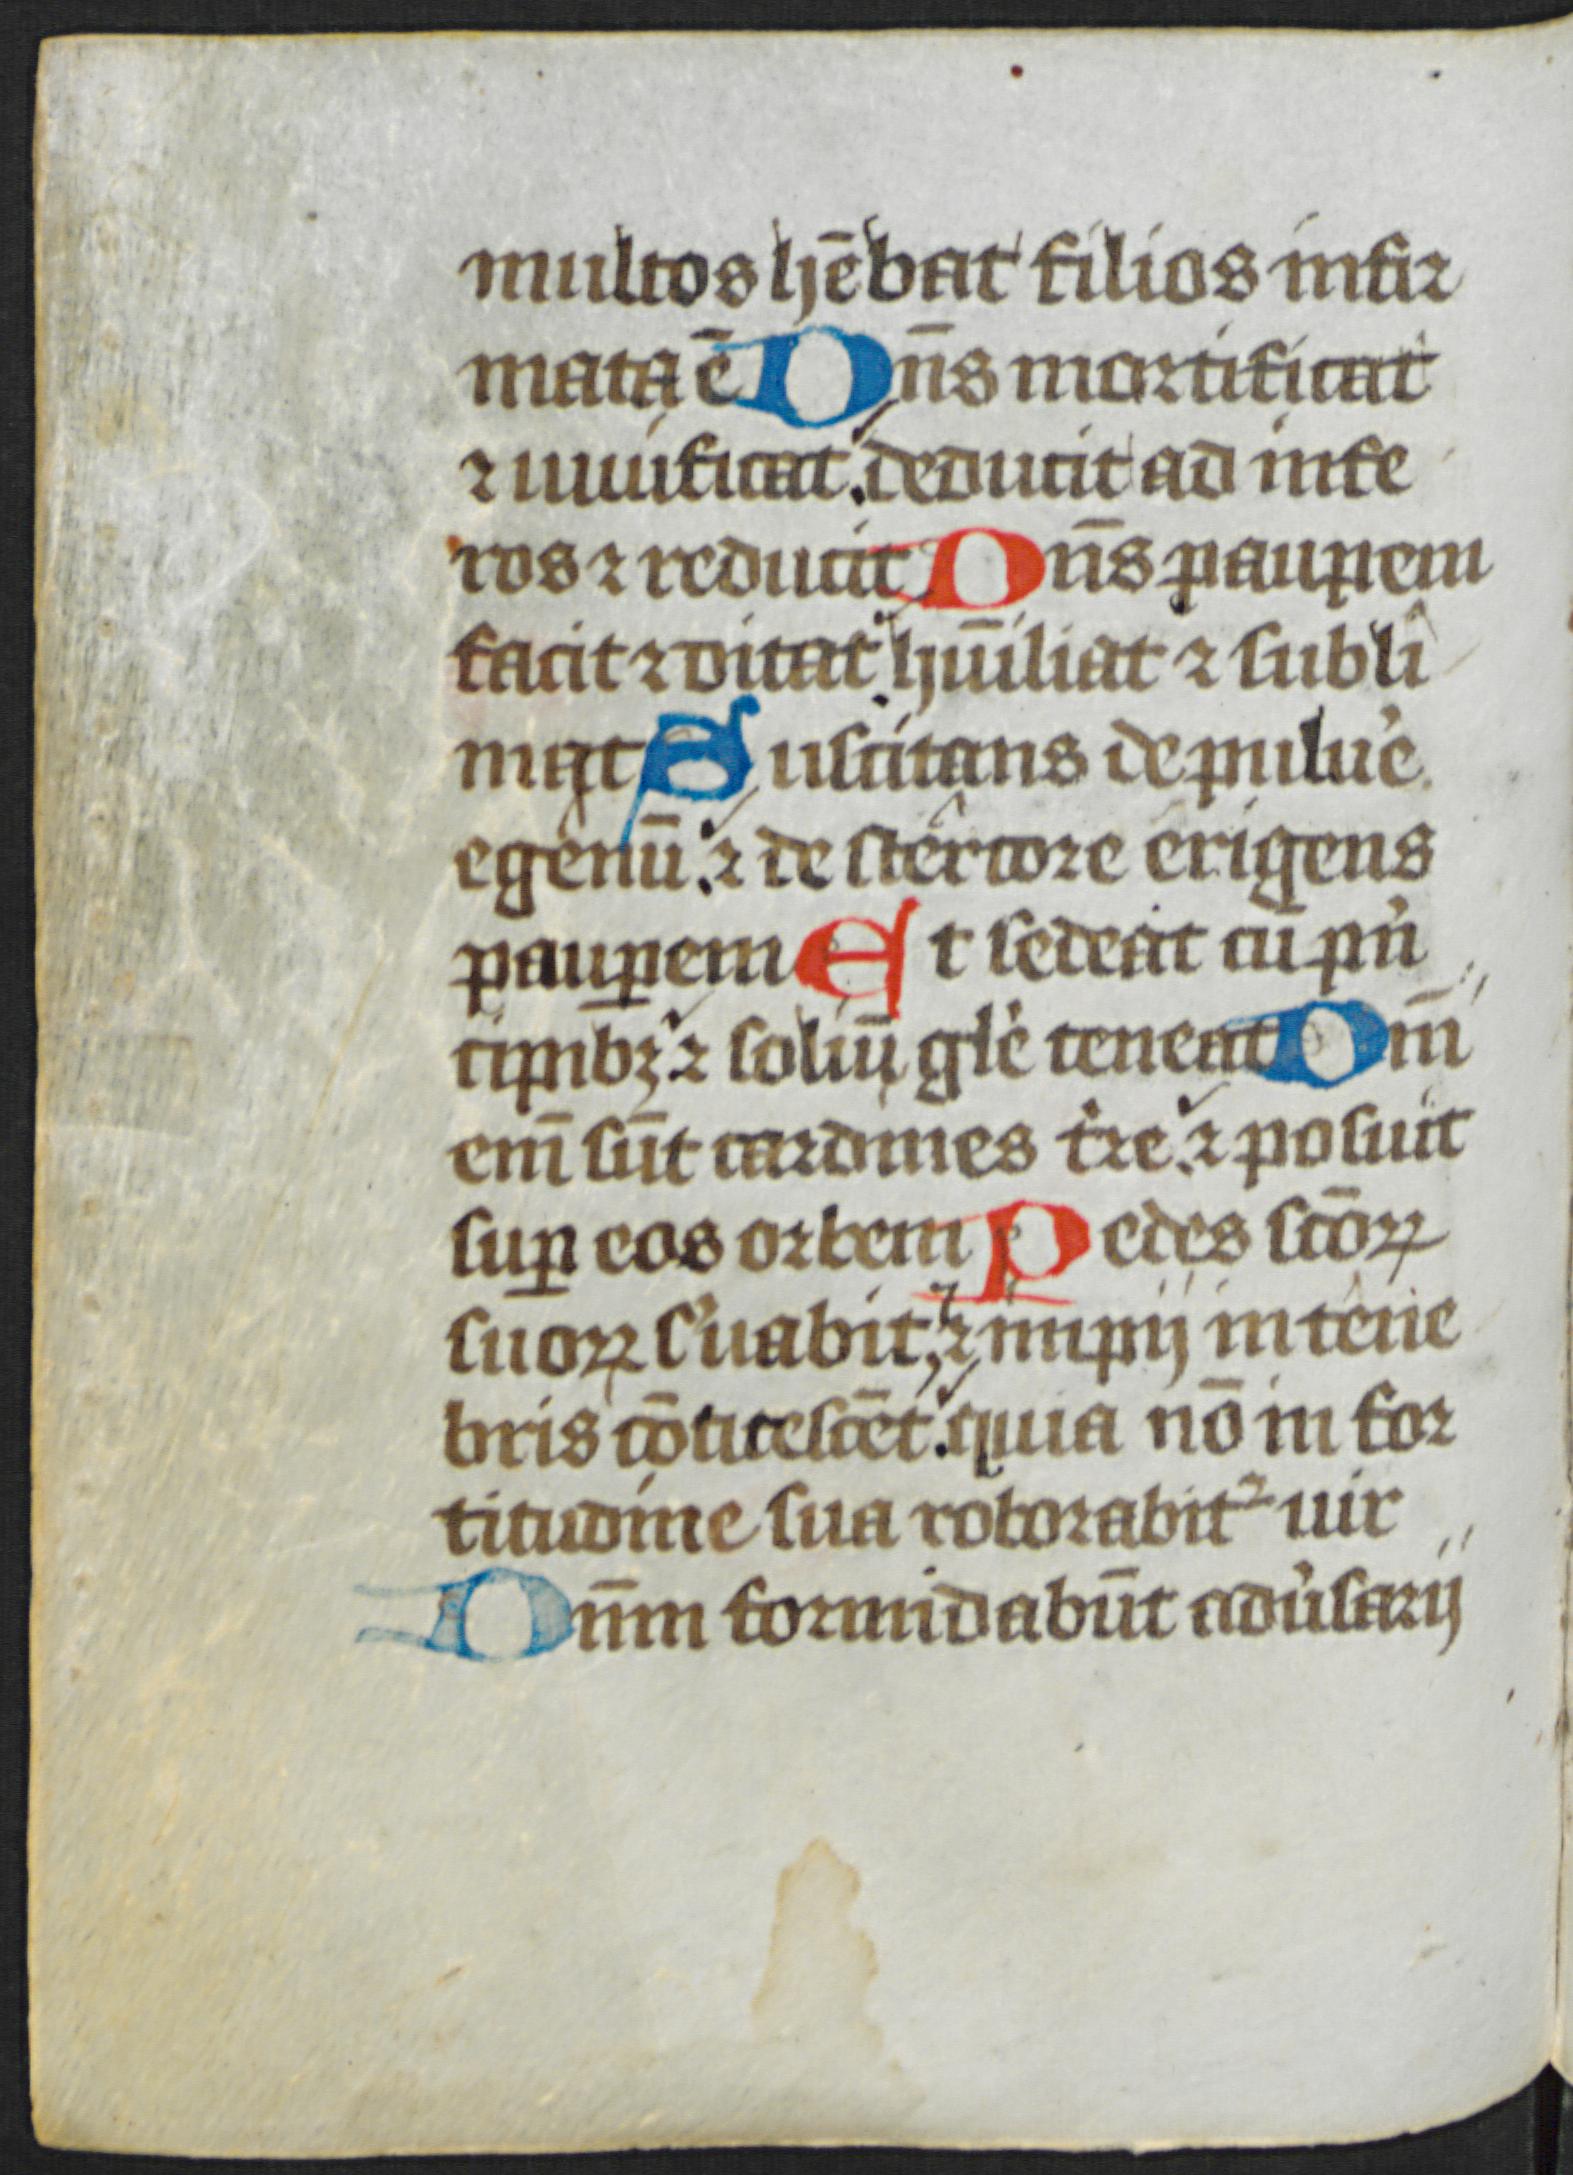 multos hēbat filios infir
mata ē Dn̄s mortificat
⁊ uiuificat. deducit ad infe
ros ⁊ reducit Dn̄s pauꝑem
facit ⁊ ditat. hūiliat ⁊ subli
mat Suscitans de pulu̾e
egenū. ⁊ de stercore erigens
pauꝑem Et sedeat cū pn̾
cipibꝫ. ⁊ soliū gl̾e teneat Dn̄i
em̄ sūt cardines t̾re. ⁊ posuit
suꝑ eos orbem Pedes scōꝝ
suoꝝ s̾uabit, ⁊ impij in tene
bris cōticescēt. quia nō in for
titudine sua roborabit᷑ uir
Dn̄m formidabūt adu̾sarij